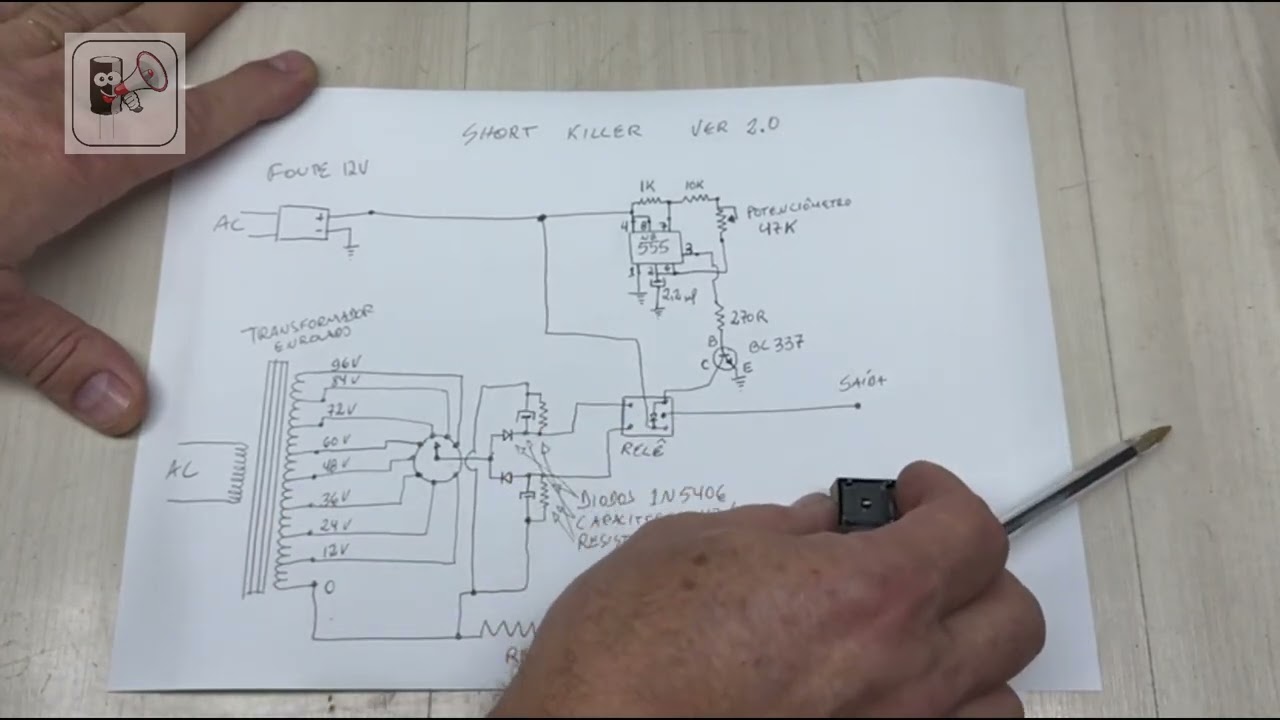 SHORT KILLER VER 2.0
FONTE 12V
AC
+
-
1K
10K
POTENCIÔMETRO
47K
4
8
7
NE
555
3
1
2
6
2,2µf
270R
B
C
E
BC337
TRANSFORMADOR
ENROLADO
96V
84V
72V
60V
48V
36V
24V
12V
0
AC
SAÍDA
RELÊ
DIODOS 1N5406